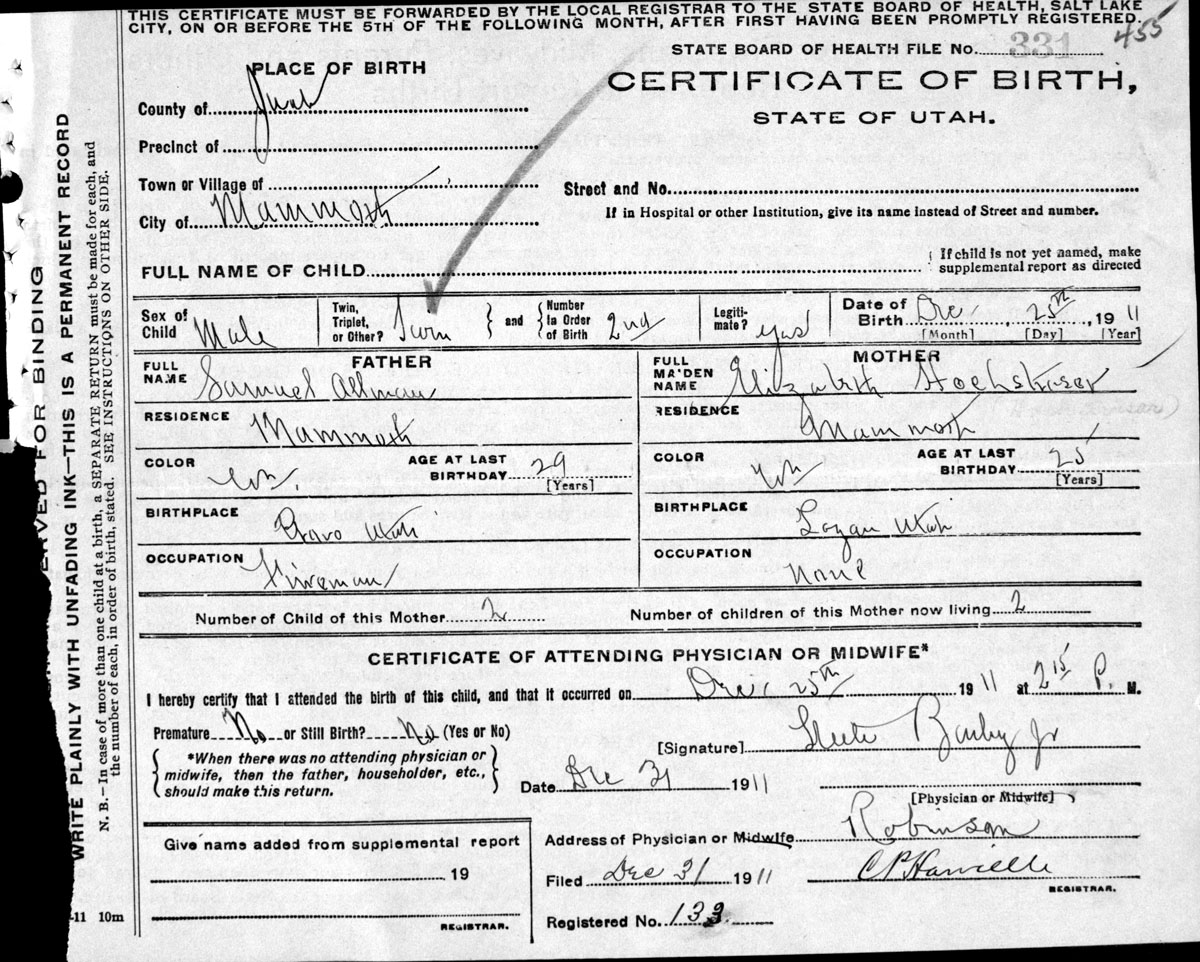 THIS CERTIFICATE MUST BE FORWARDED BY THE LOCAL REGISTRAR TO THE STATE BOARD OF HEALTH, SALT LAKE
CITY, ON OR BEFORE THE 5TH OF THE FOLLOWING MONTH, AFTER FIRST HAVING BEEN PROMPTLY REGISTERED.
455
STATE BOARD OF HEALTH FILE No. 331
PLACE OF BIRTH
CERTIFICATE OF BIRTH,
STATE OF UTAH.
County of Juab
Precinct of
Town or Village of
Street and No.
City of Mammoth
If in Hospital or other Institution, give its name instead of Street and number.
FULL NAME OF CHILD
{ If child is not yet named, make
supplemental report as directed
Sex of Child Male
Twin, Triplet, or Other? Twin
and
Number In Order of Birth 2nd
Legiti-mate? yes
Date of Birth Dec 25th, 1911
[Month] [Day] [Year]
FATHER
MOTHER
FULL NAME Samuel Allman
FULL MAIDEN NAME Elizabeth Hochstraser
RESIDENCE Mammoth
RESIDENCE Mammoth
COLOR Wh.
AGE AT LAST BIRTHDAY 29
[Years]
COLOR Wh
AGE AT LAST BIRTHDAY 25
[Years]
BIRTHPLACE Provo Utah
BIRTHPLACE Logan Utah
OCCUPATION Fireman
OCCUPATION None
Number of Child of this Mother 2
Number of children of this Mother now living 2
CERTIFICATE OF ATTENDING PHYSICIAN OR MIDWIFE*
I hereby certify that I attended the birth of this child, and that it occurred on Dec 25th 1911 at 2 15 P. M.
Premature No or Still Birth? No (Yes or No)
[Signature] Steele Bailey Jr
*When there was no attending physician or
midwife, then the father, householder, etc.,
should make this return.
Date Dec 31 1911
[Physician or Midwife]
Give name added from supplemental report
Address of Physician or Midwife Robinson
19
Filed Dec 31 1911
REGISTRAR.
Registered No. 133
REGISTRAR.
-11 10m
ERVED FOR BINDING
WRITE PLAINLY WITH UNFADING INK—THIS IS A PERMANENT RECORD
N. B.—In case of more than one child at a birth, a SEPARATE RETURN must be made for each, and
the number of each, in order of birth, stated. SEE INSTRUCTIONS ON OTHER SIDE.